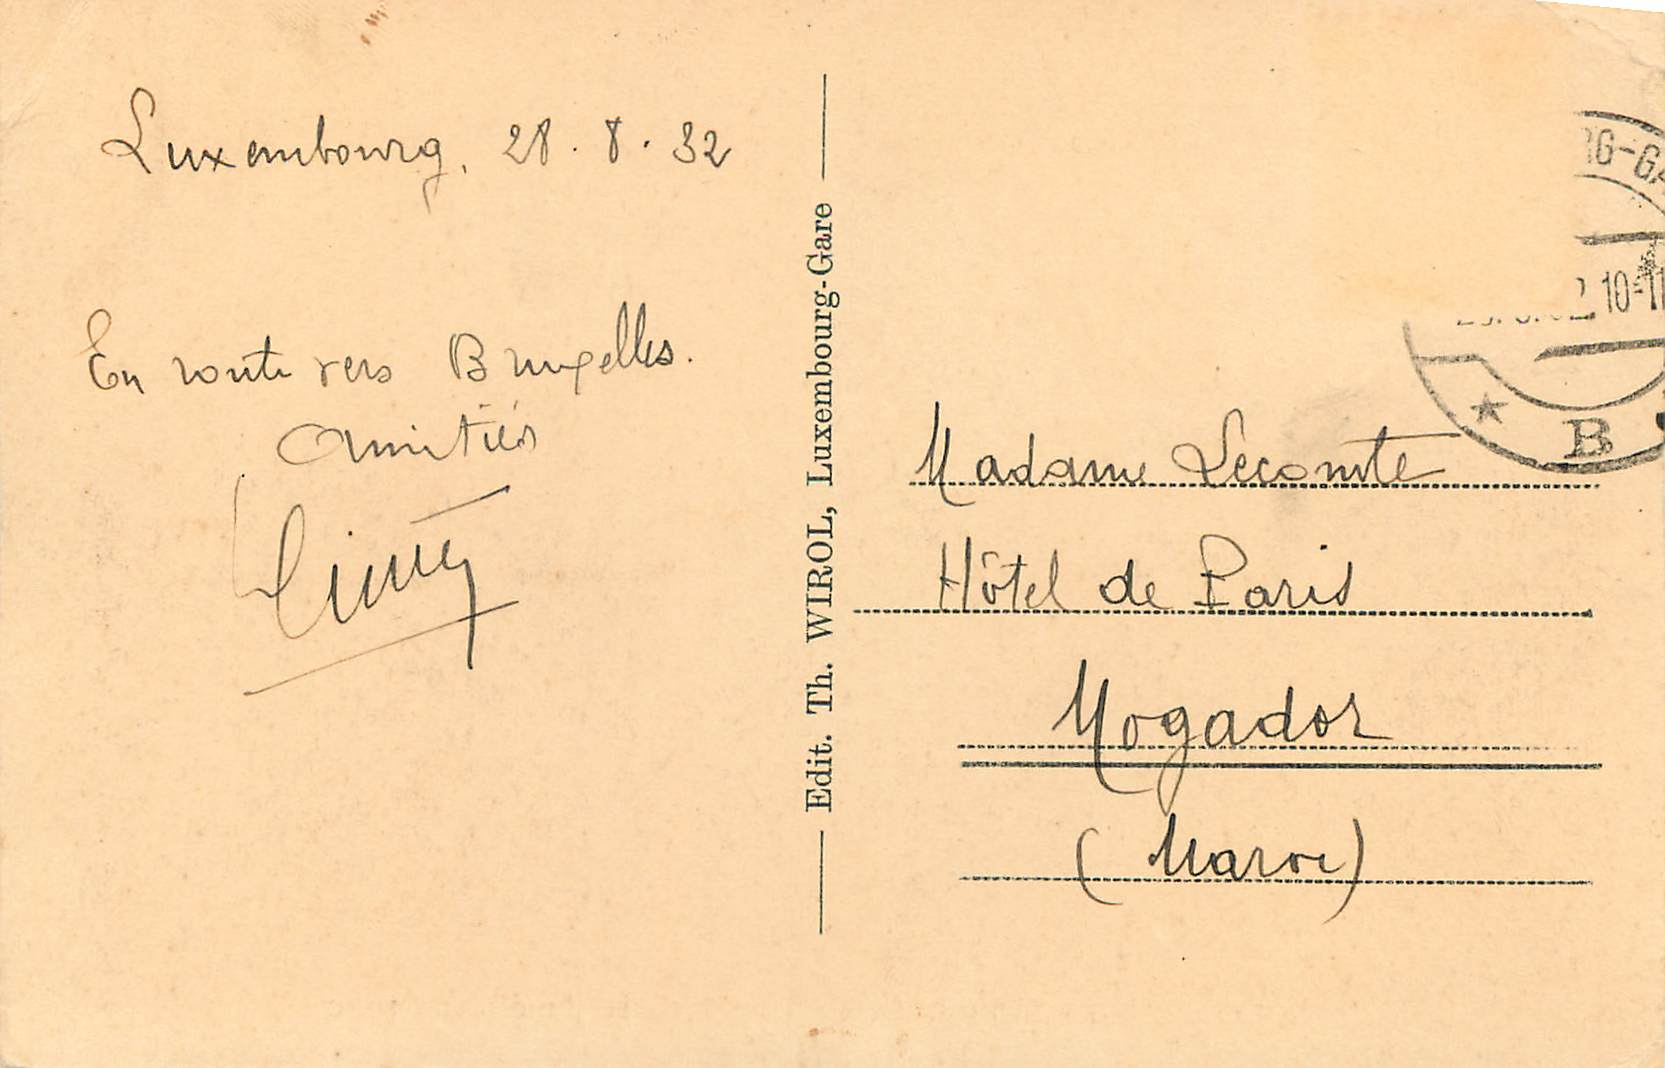 Luxembourg, 28.8.32
En route vers Bruxelles.
Amitiés
Edit. Th. WIROL, Luxembourg-Gare
RG-GA
2 10-11
B
Madame Lecomte
Hôtel de Paris
Mogador
(Maroc)